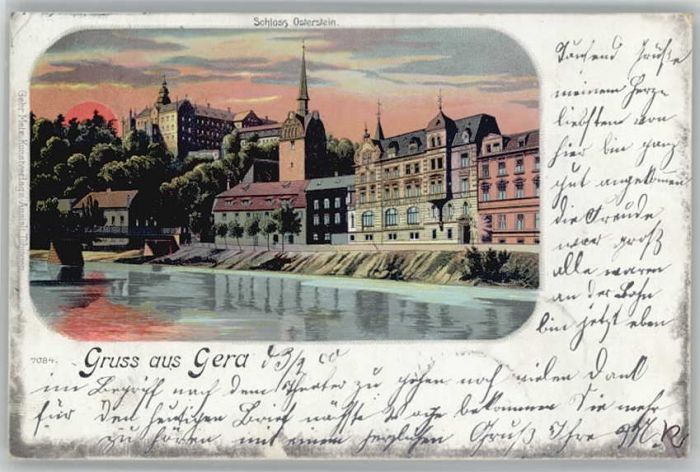 Schloss Osterstein.
Tausend Grüße
meinem Herze
liebsten von
hier bin ganz
gut angekommen
die Freude
war groß
alle waren
an der Bahn
bin jetzt eben
7084.
Gruss aus Gera d 3/2 00
im Begriff nach dem Theater zu gehen noch vielen Dank
für den heutigen Brief nächste Tage bekommen Sie mehr
zu hören mit einem herzlichen Gruß Ihre M. R
Gebr. Metz, Kunstverlags-Anstalt, Tübingen.